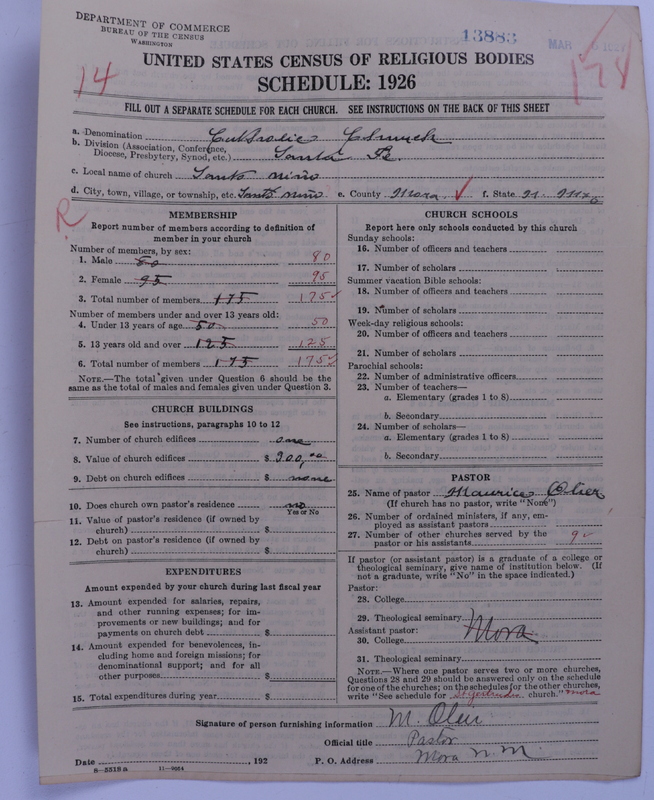 DEPARTMENT OF COMMERCE
BUREAU OF THE CENSUS
WASHINGTON
13883
MAR
UNITED STATES CENSUS OF RELIGIOUS BODIES
14
SCHEDULE: 1926
178
FILL OUT A SEPARATE SCHEDULE FOR EACH CHURCH. SEE INSTRUCTIONS ON THE BACK OF THIS SHEET
a. Denomination Catholic Church
b. Division (Association, Conference, Diocese, Presbytery, Synod, etc.) Santa
c. Local name of church Santo niño
d. City, town, village, or township, etc. Santo niño e. County Mora f. State N. Mex
R
MEMBERSHIP
Report number of members according to definition of
member in your church
Number of members, by sex:
1. Male 80 80
2. Female 95 95
3. Total number of members 175 175
Number of members under and over 13 years old:
4. Under 13 years of age 50 50
5. 13 years old and over 125 125
6. Total number of members 175 175
NOTE.—The total given under Question 6 should be the
same as the total of males and females given under Question 3.
CHURCH BUILDINGS
See instructions, paragraphs 10 to 12
7. Number of church edifices one
8. Value of church edifices $ 900,00
9. Debt on church edifices $ none
10. Does church own pastor's residence no
Yes or No
11. Value of pastor's residence (if owned by
church) $
12. Debt on pastor's residence (if owned by
church) $
EXPENDITURES
Amount expended by your church during last fiscal year
13. Amount expended for salaries, repairs,
and other running expenses; for im-
provements or new buildings; and for
payments on church debt $
14. Amount expended for benevolences, in-
cluding home and foreign missions; for
denominational support; and for all
other purposes $
15. Total expenditures during year $
CHURCH SCHOOLS
Report here only schools conducted by this church
Sunday schools:
16. Number of officers and teachers
17. Number of scholars
Summer vacation Bible schools:
18. Number of officers and teachers
19. Number of scholars
Week-day religious schools:
20. Number of officers and teachers
21. Number of scholars
Parochial schools:
22. Number of administrative officers
23. Number of teachers—
a. Elementary (grades 1 to 8)
b. Secondary
24. Number of scholars—
a. Elementary (grades 1 to 8)
b. Secondary
PASTOR
25. Name of pastor Maurice Olier
(If church has no pastor, write "None")
26. Number of ordained ministers, if any, em-
ployed as assistant pastors
27. Number of other churches served by the
pastor or his assistants 9
If pastor (or assistant pastor) is a graduate of a college or
theological seminary, give name of institution below. (If
not a graduate, write "No" in the space indicated.)
Pastor:
28. College
29. Theological seminary
Assistant pastor:
Mora
30. College
31. Theological seminary
NOTE.—Where one pastor serves two or more churches,
Questions 28 and 29 should be answered only on the schedule
for one of the churches; on the schedules for the other churches,
write "See schedule for St Gertrudis church." mora
Signature of person furnishing information M. Olier
Official title Pastor
Date , 192 P. O. Address Mora N. M.
8—5518a 11—9054